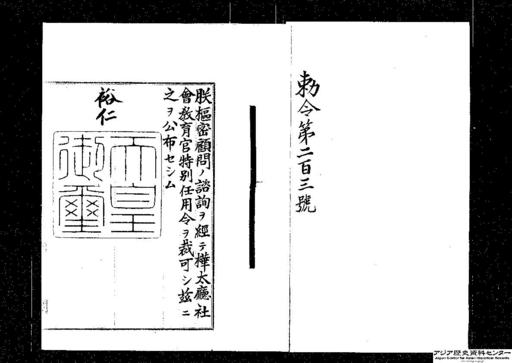 勅令第二百三號
朕樞密顧問ノ諮詢ヲ經テ樺太廳社
會教育官特別任用令ヲ裁可シ茲ニ
之ヲ公布セシム
裕仁
天皇
御璽
アジア歴史資料センター
Japan Center for Asian Historical Records